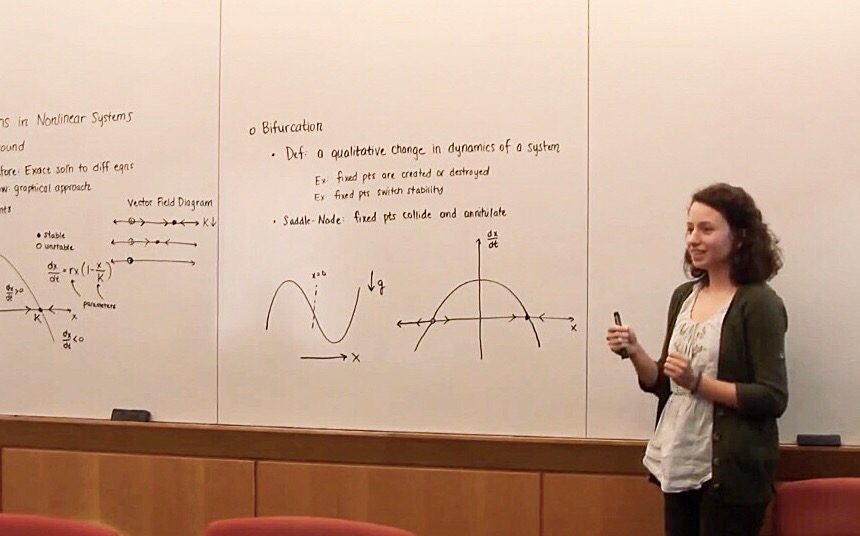 ns in Nonlinear Systems
ound
fore: Exact soln to diff eqns
w: graphical approach
nts
• stable
○ unstable
dx/dt = rx(1-x/K)
parameters
dx/dt >0
K
x
dx/dt <0
Vector Field Diagram
K↓
o Bifurcation
• Def: a qualitative change in dynamics of a system
Ex: fixed pts are created or destroyed
Ex fixed pts switch stability
• Saddle-Node: fixed pts collide and annihilate
x=0
↓g
x
dx/dt
x